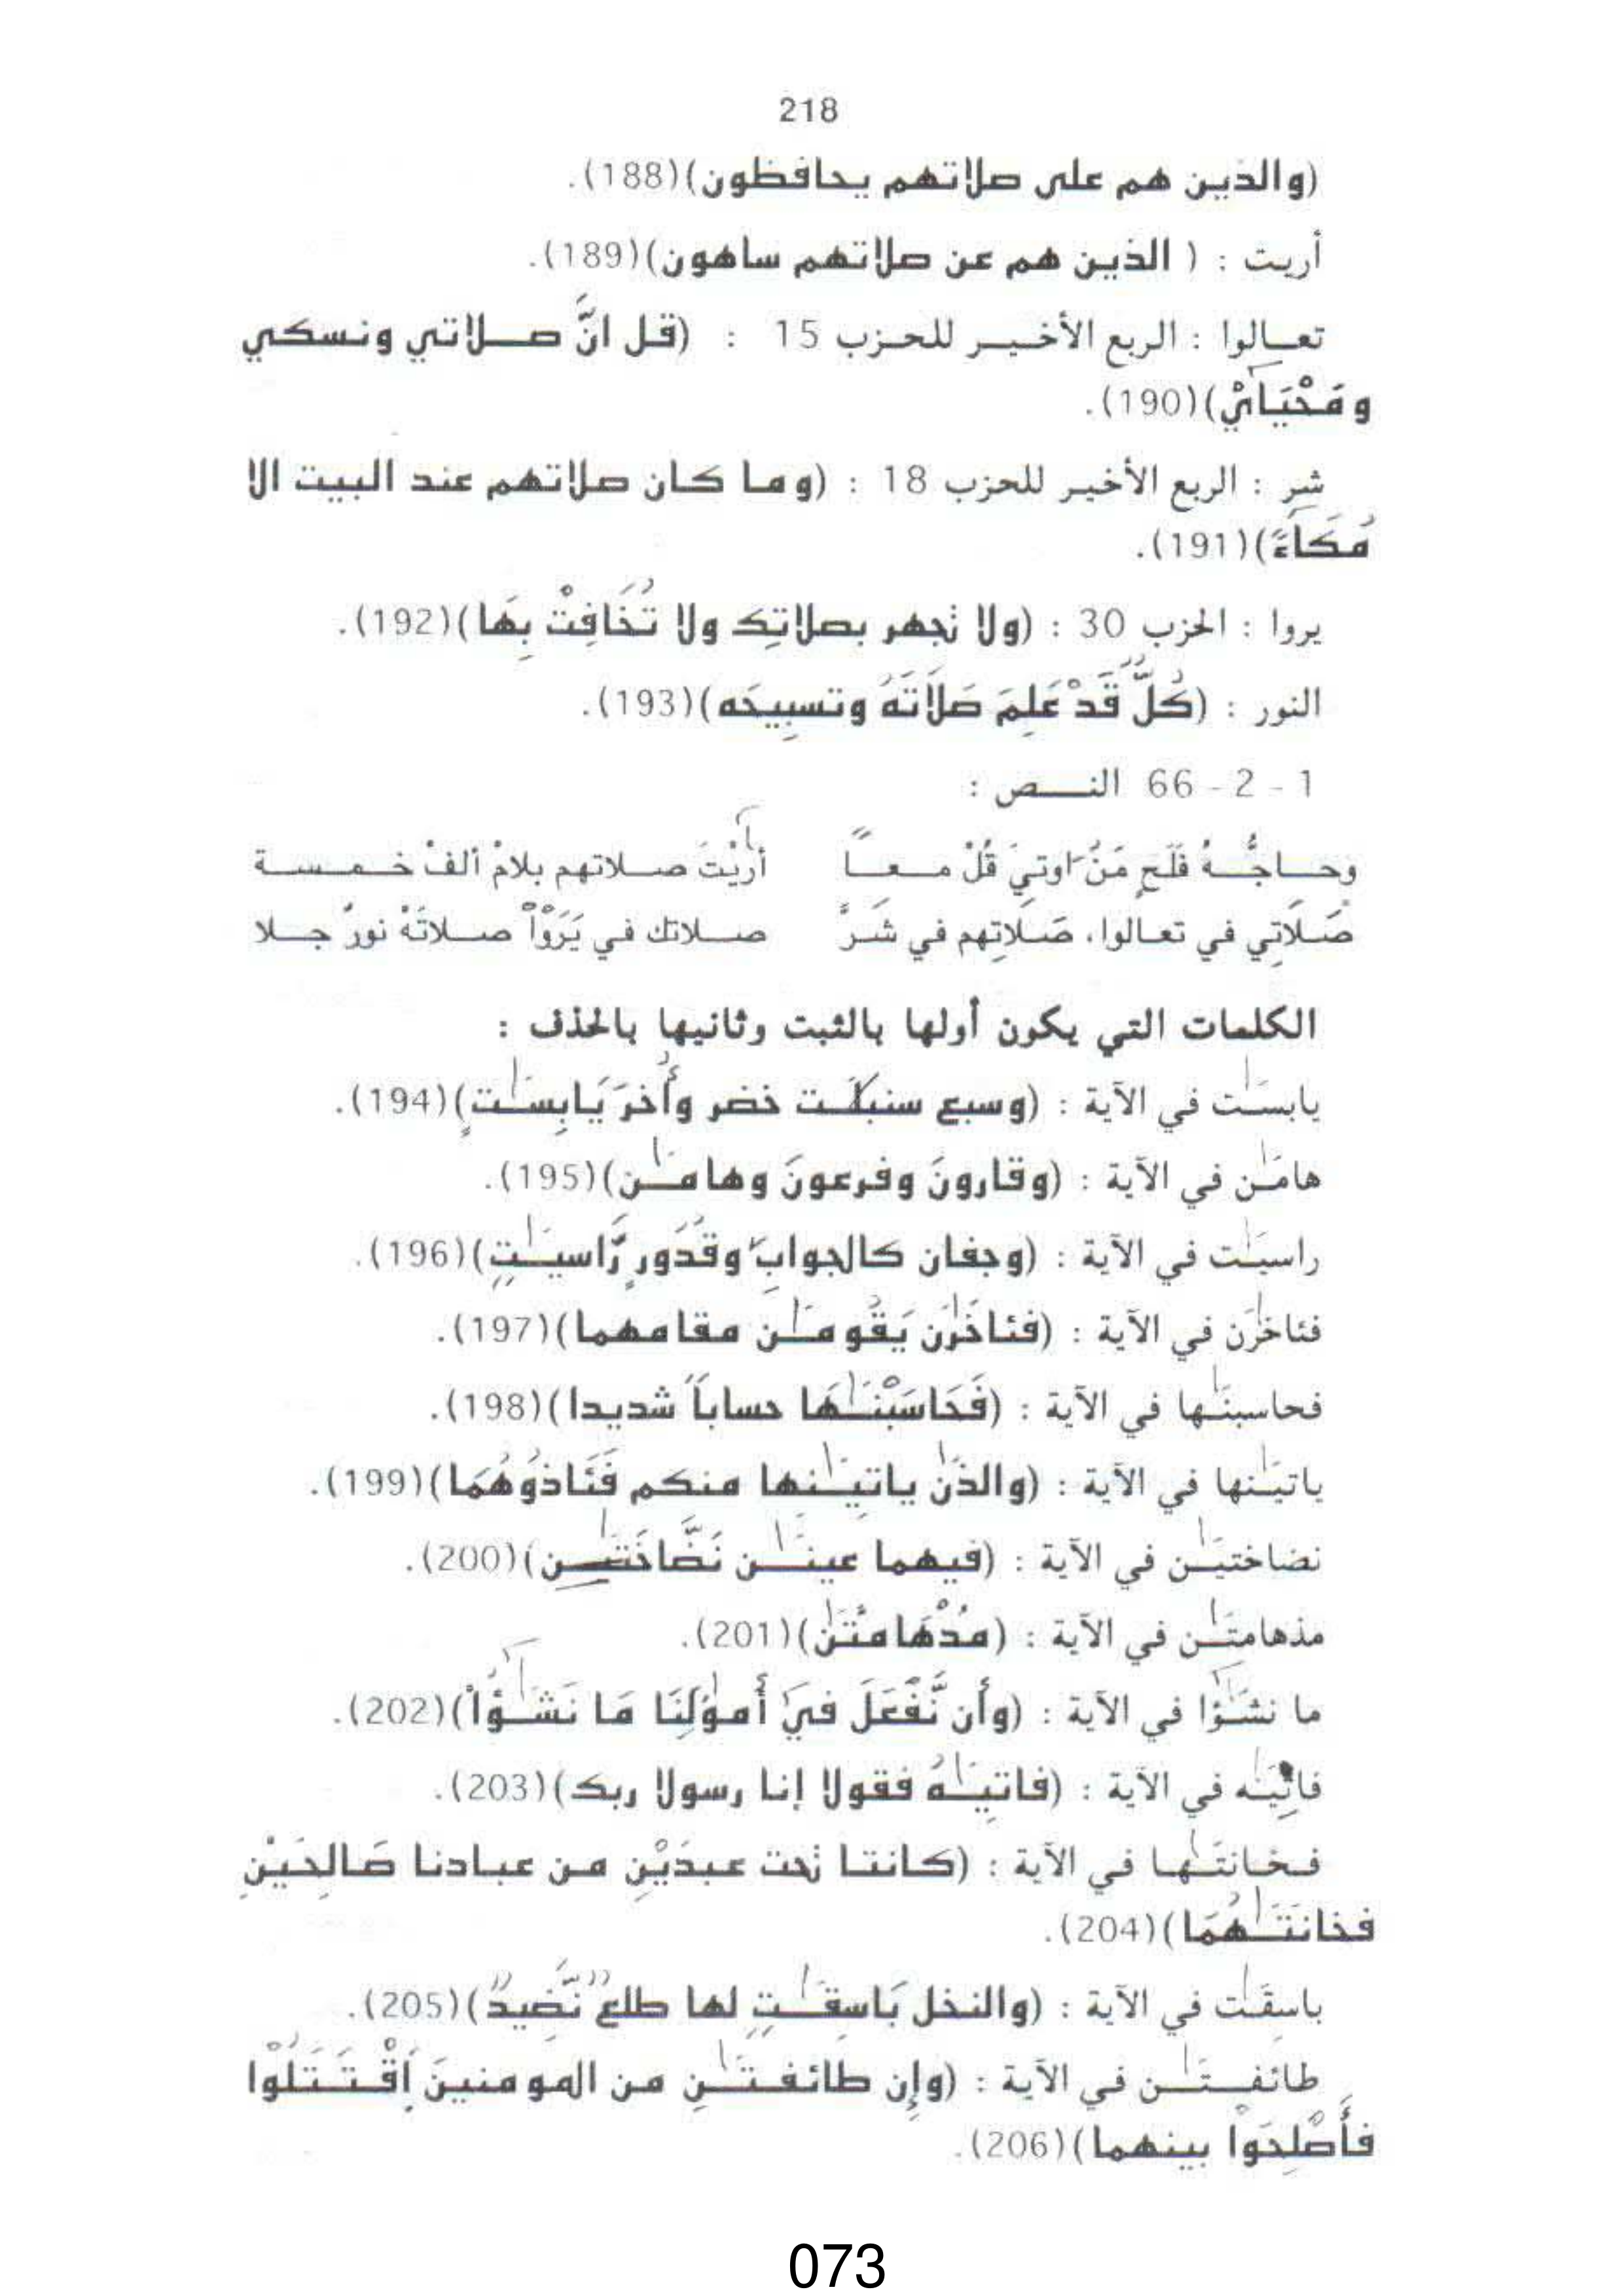 218
(والذين هم على صلاتهم يحافظون)(188).
أريت : ( الذين هم عن صلاتهم ساهون)(189).
تعـالوا : الربع الأخـيـر للحـزب 15 : (قـل انَّ صـلاتي ونـسكـي
ومَحْيَـايْ)(190).
شر : الربع الأخيـر للحزب 18 : (وما كان صلاتهم عند البيت الا
مُكَاءً)(191).
يروا : الحزب 30 : (ولا تجهر بصلاتِك ولا تُخَافِتْ بِهَا)(192).
النور : (كُلٌّ قَدْ عَلِمَ صَلَاتَهُ وتسبِيحَه)(193).
1 - 2 - 66 النـــص :
وحـاجُّـهُ فَلَحِ مَنُ اوتيَ قُلْ مـعـاً أرَيْتَ صـلاتهم بلامْ ألفْ خـمـسـة
صَـلَاتِي في تعـالوا، صَـلَاتِهم في شَـرٍّ صـلاتك في يَرَوْاْ صـلاتَهُ نورٌ جـلا
الكلمات التي يكون أولها بالثبت وثانيها بالحذف :
يابسَـٰت في الآية : (وسبع سنبلَـٰت خضر وأُخرَ يَابِسَـٰتٍ)(194).
هامَـٰن في الآية : (وقارونَ وفرعونَ وهامَـٰن)(195).
راسيَـٰت في الآية : (وجفان كالجوابِ وقُدُورٍ رَّاسيَـٰتٍ)(196).
فئاخرٰن في الآية : (فئاخَرٰن يَقُومَـٰن مقامهما)(197).
فحاسبنَـٰها في الآية : (فَحَاسَبْنَـٰهَا حساباً شديدا)(198).
ياتيَـٰنها في الآية : (والذَٰن ياتيَـٰنها منكم فَئَاذُوهُمَا)(199).
نضاختيَـٰن في الآية : (فيهما عينَـٰن نَضَّاخَتَـٰن)(200).
مذهامتَـٰن في الآية : (مُدْهَامَّتَٰن)(201).
ما نشَـٰؤا في الآية : (وأَن نَّفْعَلَ فيَ أَموَٰلِنَا مَا نَشَـٰؤُاْ)(202).
فاتِيَـٰه في الآية : (فاتيَـٰهُ فقولا إنا رسولا ربك)(203).
فـخـانتَـٰهـا في الآية : (كـانتـا تحت عـبدَيْنِ مـن عبـادنا صَالحَيْنِ
فخانَتَـٰهُمَا)(204).
باسقَـٰت في الآية : (والنخل بَاسقَـٰتٍ لها طلعٌ نَّضِيدٌ)(205).
طائفـتَـٰـن في الآية : (وإِن طائفـتَـٰنِ من المومنينَ اَقْـتَـتَـلُوْا
فأَصْلِحَوا بينهما)(206).
073